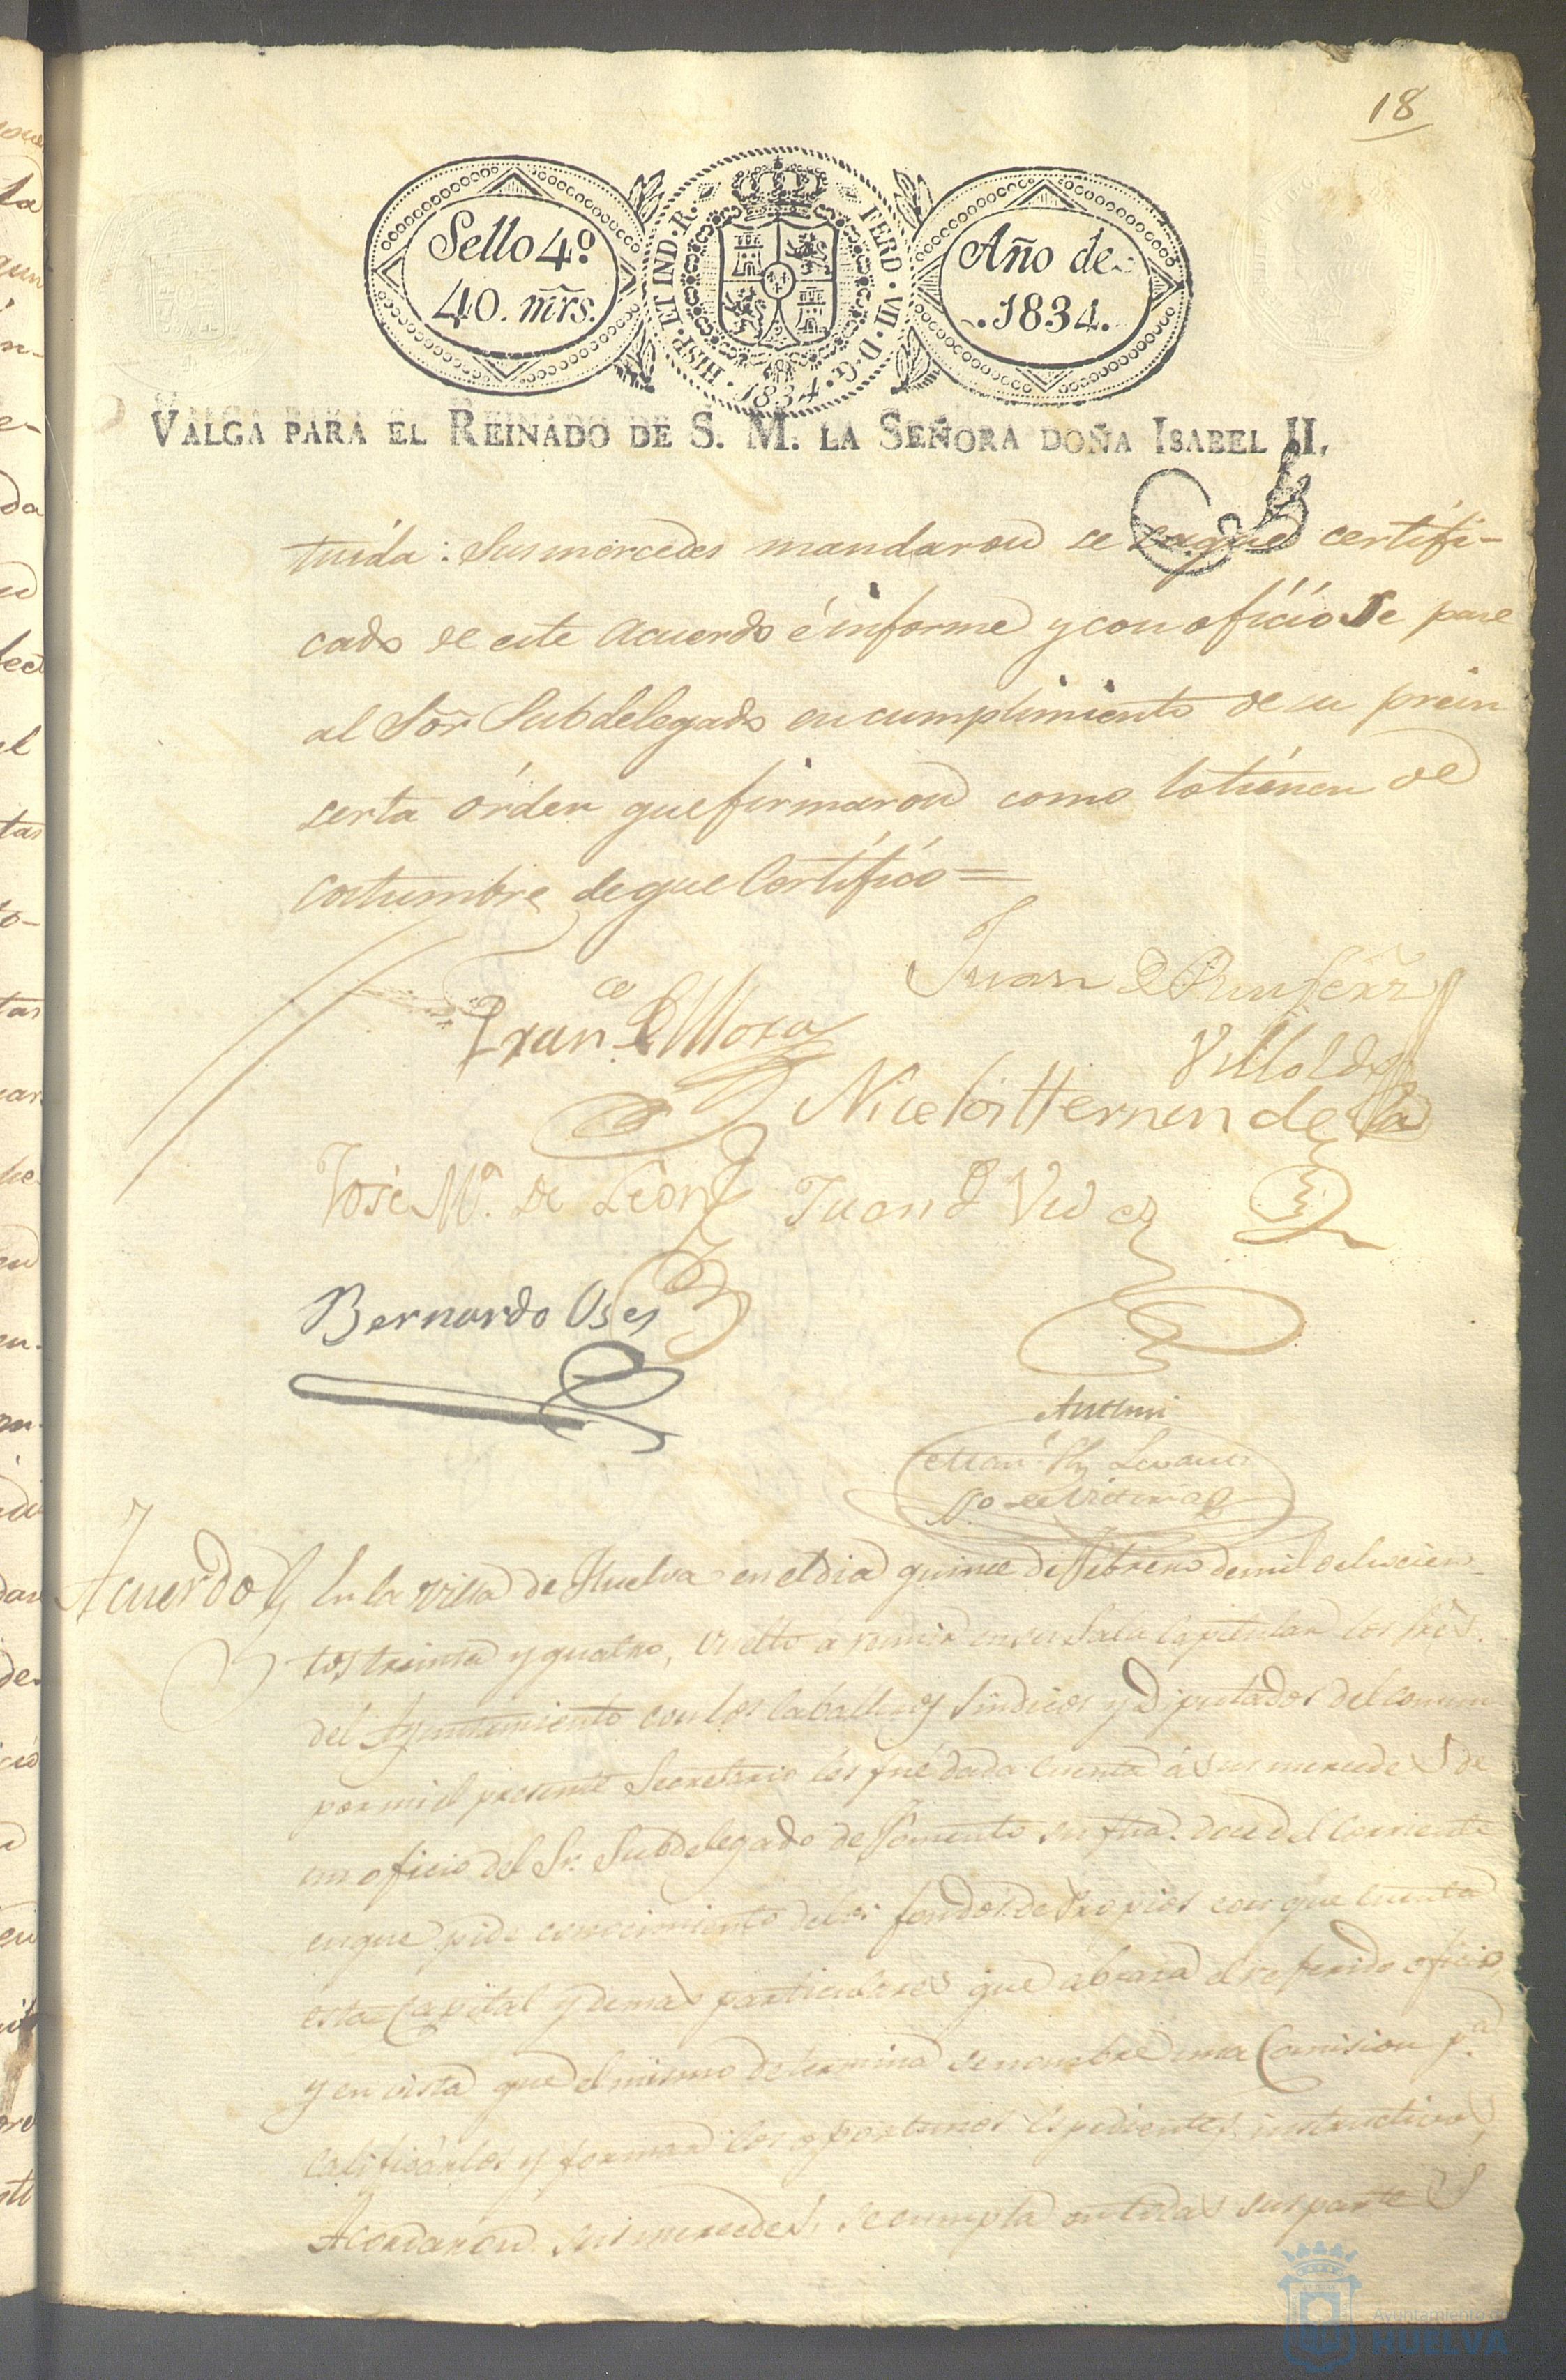 18
Sello 4º
40. mrs.
HISP. ET IND. R. FERD. VII. D. G. 1834.
Año de
.1834.
VALGA PARA EL REINADO DE S. M. LA SEÑORA DOÑA ISABEL II.
tuida: Sus mercedes mandaron se saque certifi-
cado de este acuerdo é informe y con oficio se pase
al Sor Subdelegado en cumplimiento de su prein
serta órden que firmaron como lo tienen de
costumbre de que Certifico =
Juan
Franco Mora
Villoldo
Nicolas Hernandez
José Mª. de Leon Juan
Bernardo Oses
Antemi
Acuerdo En la Villa de Huelva en el dia quince de Febrero de mil ochocien
tos treinta y quatro, vuelto á reunir en su Sala Capitular los Sres.
del Ayuntamiento con los Caballeros Sindicos y Diputados del comun
por mi el presente Secretario les fué dada cuenta á sus mercedes de
un oficio del Sr. Subdelegado de Fomento su fha. doce del corriente
en que pide conocimiento de los fondos de Propios con que cuenta
esta Capital y demas particulares que abraza el referido oficio,
y en vista que el mismo determina se nombre una Comision pª
calificarlos y formar los oportunos espedientes instructivos,
Acordaron sus mercedes, se cumpla en todas sus partes
Ayuntamiento
HUELVA